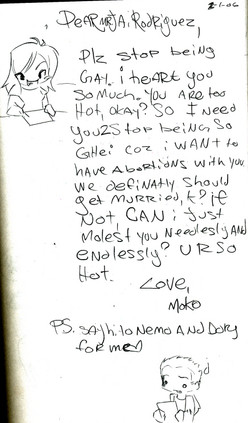 2-1-06
DeAR MR. A. RODRIGUEZ,
Plz stop being
GAY. i heART you
so much. you ARE too
Hot, okay? So I need
you2stop being so
GHei coz i wANT to
have Abortions with you.
we definAtly should
get MURRied, k? if
Not, CAN i just
Molest you Needlesly AND
endlessly? U R SO
Hot.
Love,
Moko
PS. SAy hi to Nemo AND Dory
for me